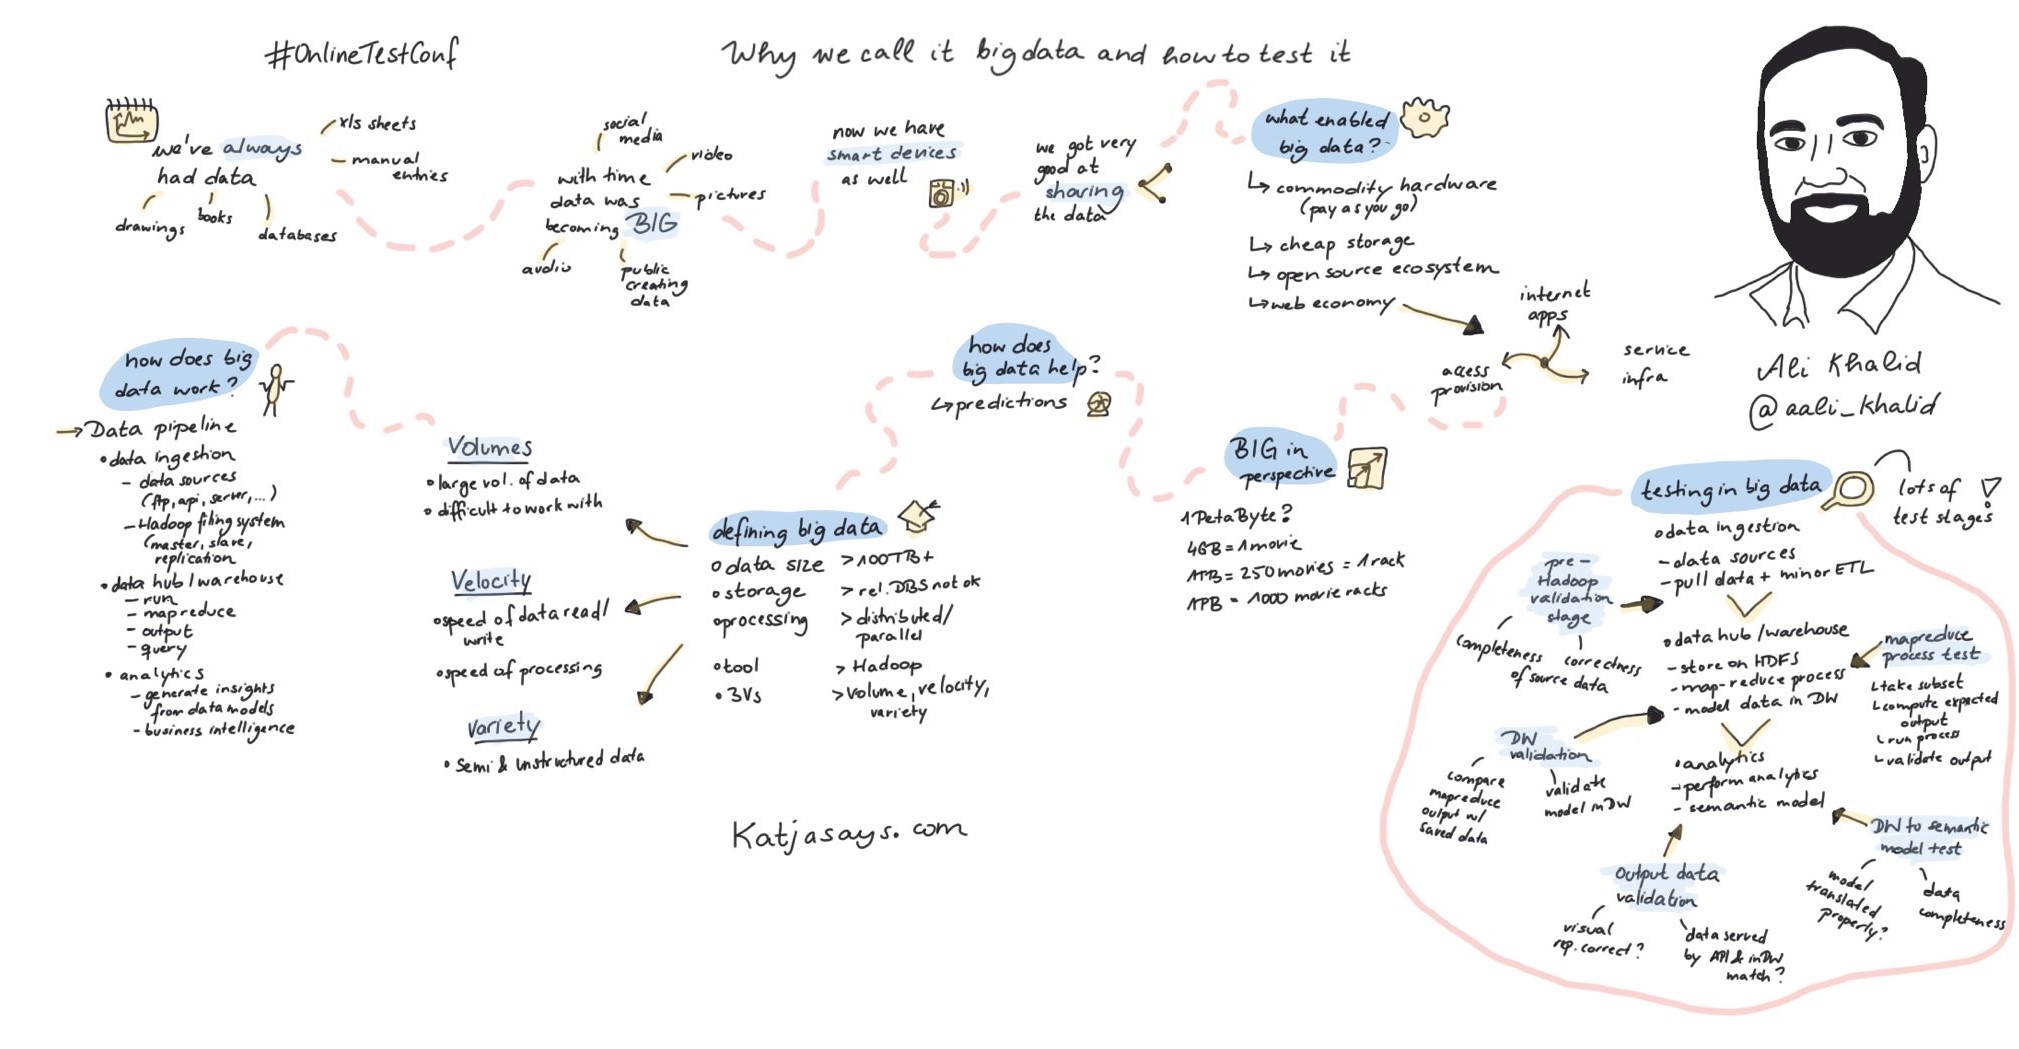 #OnlineTestConf
Why we call it big data and how to test it
we've always
had data
xls sheets
manual
entries
drawings
books
databases
with time
data was
becoming BIG
social
media
video
pictures
audio
public
creating
data
now we have
smart devices
as well
we got very
good at
sharing
the data
what enabled
big data?
↳ commodity hardware
(pay as you go)
↳ cheap storage
↳ open source ecosystem
↳ web economy
internet
apps
access
provision
service
infra
Ali Khalid
@aali_khalid
BIG in
perspective
1 PetaByte?
4GB = 1 movie
1TB = 250 movies = 1 rack
1PB = 1000 movie racks
how does
big data help?
↳ predictions
defining big data
o data size > 100TB+
o storage > rel. DBS not ok
o processing > distributed/
parallel
o tool > Hadoop
• 3Vs > volume, velocity,
variety
Volumes
• large vol. of data
• difficult to work with
Velocity
• speed of data read/
write
• speed of processing
Variety
• Semi & Unstructured data
how does big
data work?
→ Data pipeline
• data ingestion
- data sources
(ftp, api, server, ...)
- Hadoop filing system
(master, slave,
replication
• data hub / warehouse
- run
- map reduce
- output
- query
• analytics
- generate insights
from data models
- business intelligence
testing in big data
lots of
test stages!
o data ingestion
- data sources
- pull data + minor ETL
pre-
Hadoop
validation
stage
completeness
correctness
of source data
• data hub / warehouse
- store on HDFS
- map-reduce process
- model data in DW
mapreduce
process test
↳ take subset
↳ compute expected
output
↳ run process
↳ validate output
DW
validation
compare
mapreduce
output w/
saved data
validate
model in DW
• analytics
- perform analytics
- semantic model
DW to semantic
model test
model
translated
properly?
data
completeness
Output data
validation
visual
rep. correct?
data served
by API & in DW
match?
Katjasays.com